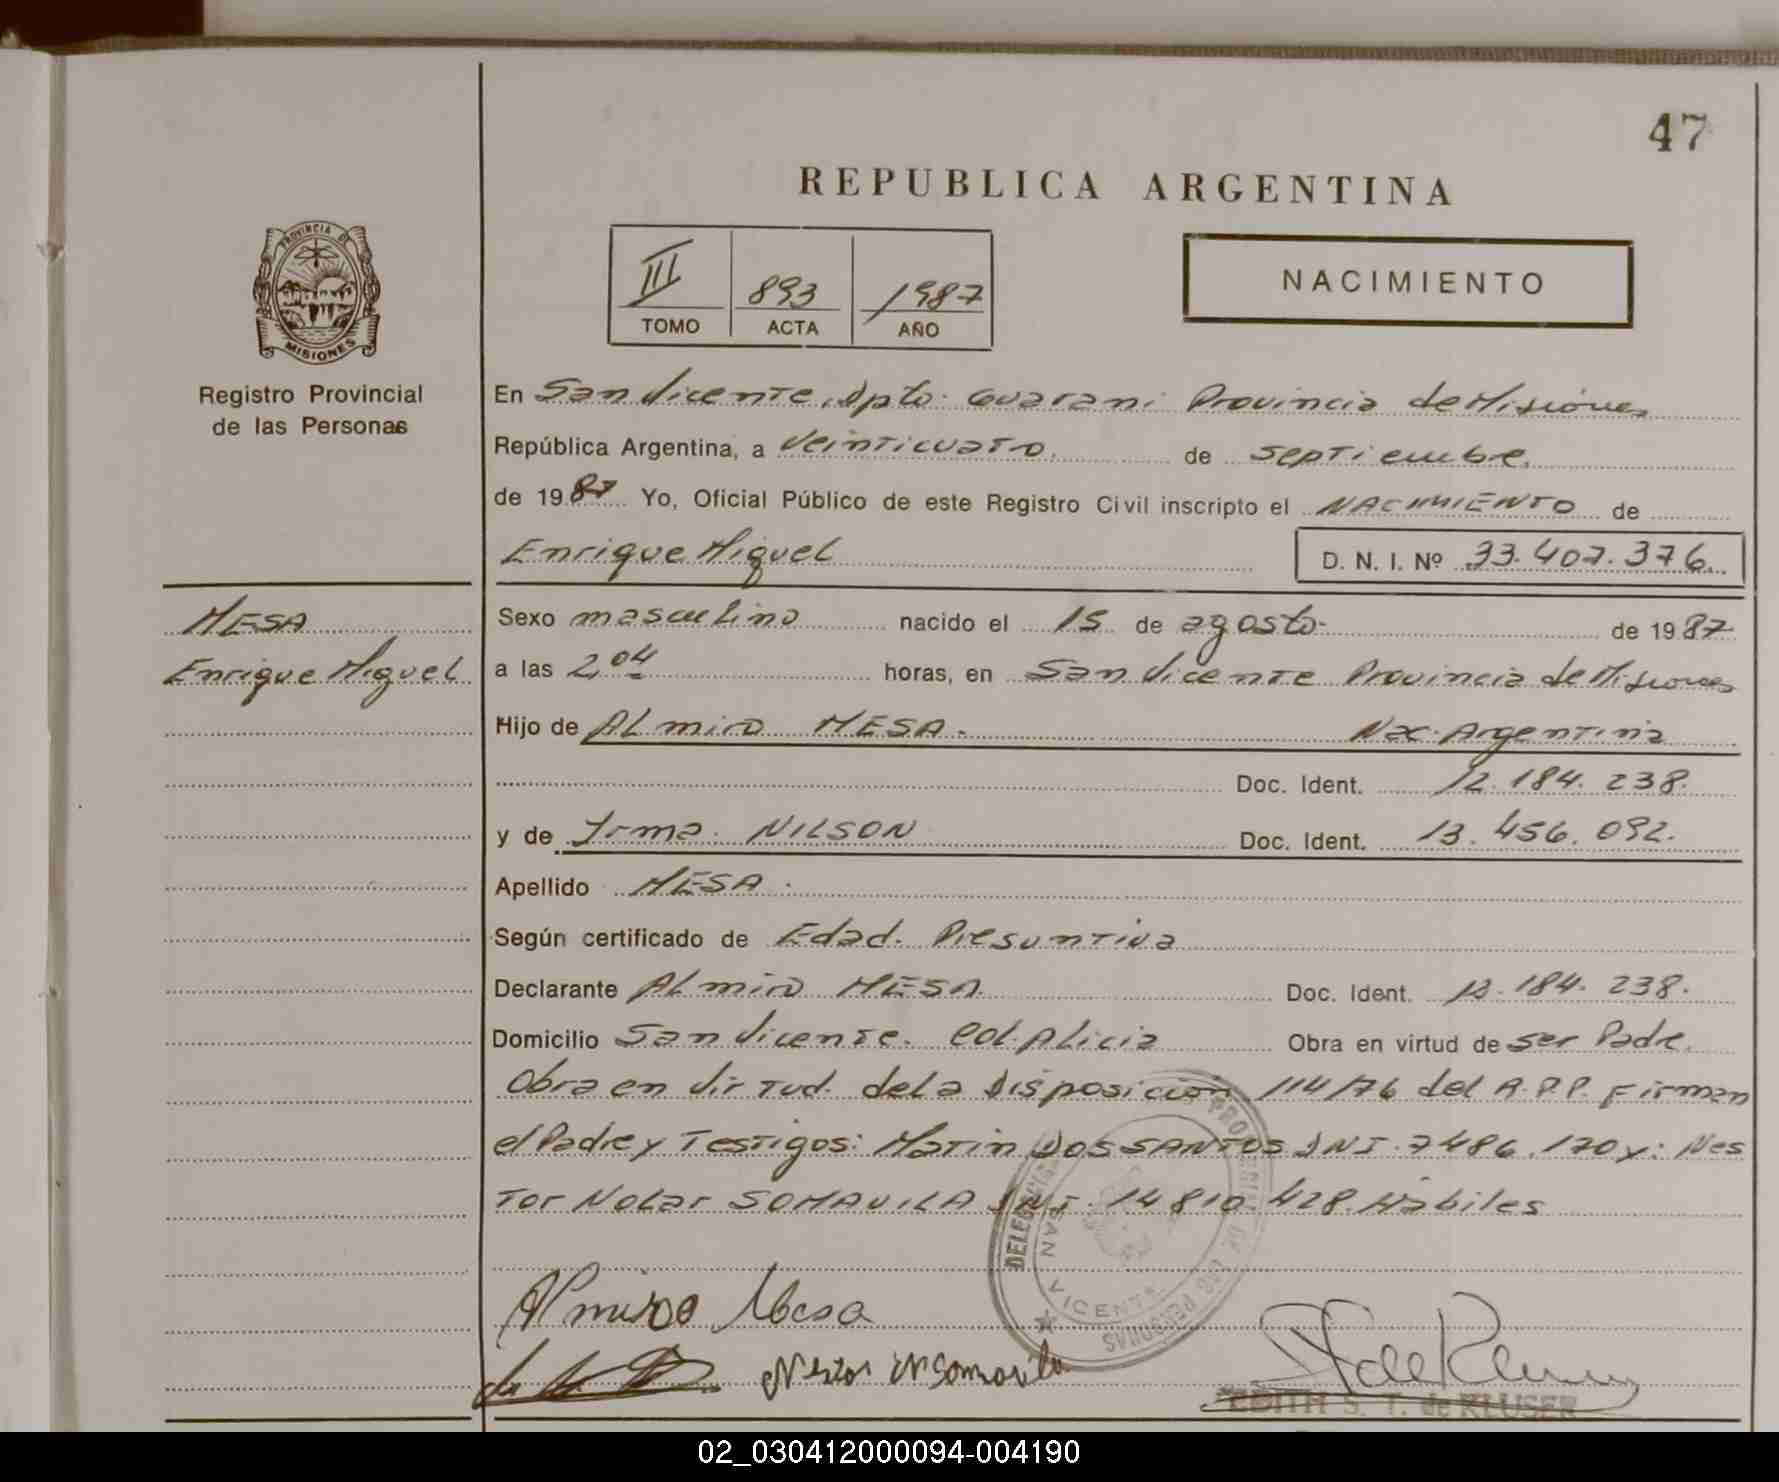 47
REPUBLICA ARGENTINA
PROVINCIA DE
MISIONES
Registro Provincial
de las Personas
III 893 1987
TOMO ACTA AÑO
NACIMIENTO
En San Vicente, Dpto. Guarani Provincia de Misiones
República Argentina, a Veinticuatro. de septiembre.
de 1987 Yo, Oficial Público de este Registro Civil inscripto el NACIMIENTO de
Enrique Miguel D. N. I. Nº 33.407.376.
MESA
Enrique Miguel
Sexo masculino nacido el 15 de agosto. de 1987
a las 2,04 horas, en San Vicente Provincia de Misiones
Hijo de ALmiro MESA. Nac. Argentina
Doc. Ident. 12.184.238.
y de Irma. NILSON Doc. Ident. 13.456.092.
Apellido MESA.
Según certificado de Edad. Presuntiva
Declarante ALmiro MESA. Doc. Ident. 12.184.238.
Domicilio San Vicente. Col. Alicia Obra en virtud de ser Padre.
Obra en virtud. de la Disposición 114/76 del R.P.P. Firman
el Padre y Testigos: Martin DOS SANTOS DNI. 7486.170 y: Nes
tor Nolar SOMAVILA DNI. 14810.428. Hábiles
SAN VICENTE
Almiro Mesa
Nestor N Somavila
EDITH S. T. de KLUSER
02_030412000094-004190